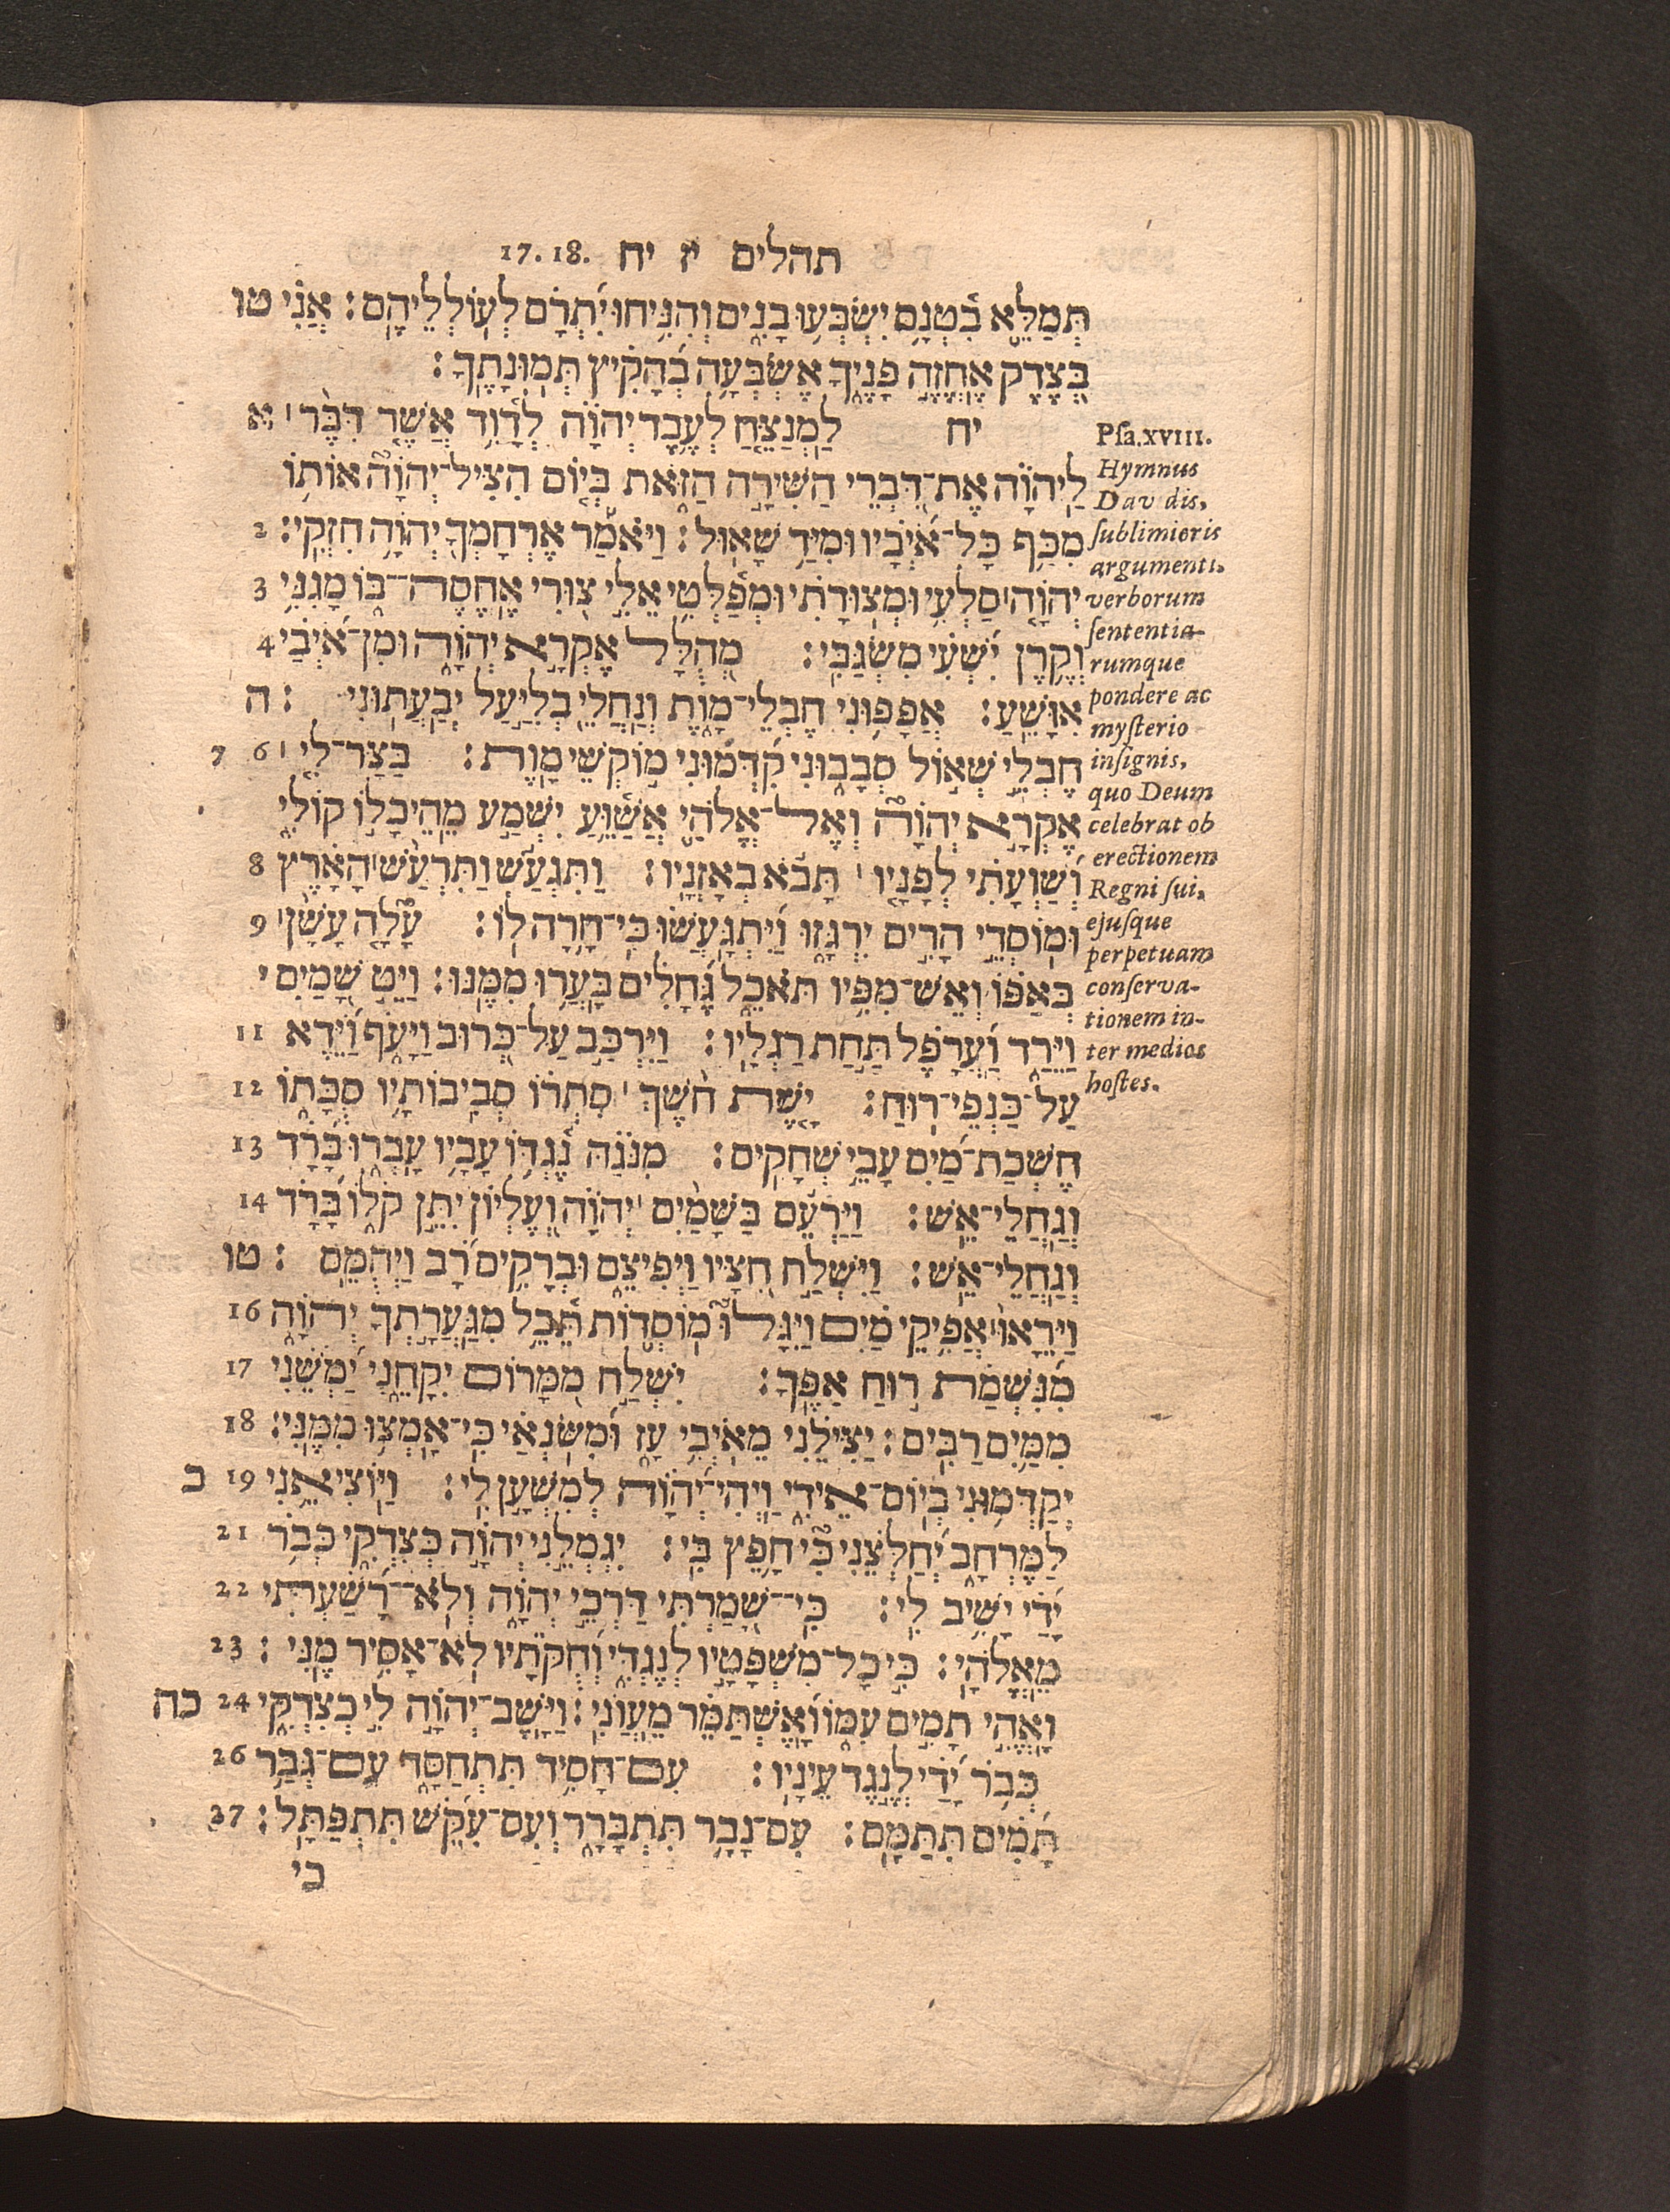 תהלים יז יח 17.18.
תְּמַלֵּ֪א בִ֫טְנָ֥ם יִשְׂבְּע֥וּ בָנִ֑ים וְהִנִּ֥יחוּ יִ֝תְרָ֗ם לְעֽוֹלְלֵיהֶֽם׃ אֲנִ֗י טו
בְּ֭צֶדֶק אֶחֱזֶ֣ה פָנֶ֑יךָ אֶשְׂבְּעָ֥ה בְ֝הָקִ֗יץ תְּמֽוּנָתֶֽךָ׃
יח לַמְנַצֵּ֤חַ לְעֶ֥בֶד יְהוָ֗ה לְדָ֫וִ֥ד אֲשֶׁ֤ר דִּבֶּ֨ר ׀ א
לַיהוָ֗ה אֶת־דִּ֭בְרֵי הַשִּׁירָ֣ה הַזֹּ֑את בְּי֤וֹם הִֽצִּיל־יְהוָ֘ה אוֹת֥וֹ
מִכַּ֥ף כָּל־אֹ֝יְבָ֗יו וּמִיַּ֥ד שָׁאֽוּל׃ וַיֹּאמַ֡ר אֶרְחָמְךָ֖ יְהוָ֣ה חִזְקִֽי׃ 2
יְהוָ֤ה ׀ סַֽלְעִ֥י וּמְצוּדָתִ֗י וּמְפַ֫לְטִ֥י אֵלִ֣י צ֭וּרִי אֶֽחֱסֶה־בּ֑וֹ מָֽגִנִּ֥י 3
וְקֶֽרֶן יִ֝שְׁעִ֗י מִשְׂגַּבִּֽי׃ מְ֭הֻלָּל אֶקְרָ֣א יְהוָ֑ה וּמִן־אֹ֝יְבַ֗י 4
אִוָּשֵֽׁעַ׃ אֲפָפ֥וּנִי חֶבְלֵי־מָ֑וֶת וְֽנַחֲלֵ֖י בְלִיַּ֣עַל יְבַֽעֲתֽוּנִי׃ ה
חֶבְלֵ֣י שְׁא֣וֹל סְבָב֑וּנִי קִ֝דְּמ֗וּנִי מ֣וֹקְשֵׁי מָֽוֶת׃ בַּצַּר־לִ֤י ׀ 6 7
אֶֽקְרָ֣א יְהוָה֮ וְאֶל־אֱלֹהַ֪י אֲשַׁ֫וֵּ֥עַ יִשְׁמַ֣ע מֵהֵיכָל֣וֹ קוֹלִ֑י
וְ֝שַׁוְעָתִ֗י לְפָנָ֤יו ׀ תָּב֬וֹא בְאָזְנָֽיו׃ וַתִּגְעַ֬שׁ וַתִּרְעַ֨שׁ ׀ הָאָ֗רֶץ 8
וּמוֹסְדֵ֣י הָרִ֣ים יִרְגָּ֑זוּ וַ֝יִּתְגָּֽעֲשׁ֗וּ כִּי־חָ֥רָה לֽוֹ׃ עָ֘לָ֤ה עָשָׁ֨ן ׀ 9
בְּאַפּ֗וֹ וְאֵשׁ־מִפִּ֥יו תֹּאכֵ֑ל גֶּ֝חָלִ֗ים בָּֽעֲר֥וּ מִמֶּֽנּוּ׃ וַיֵּ֣ט שָׁ֭מַיִם י
וַיֵּרַ֑ד וַ֝עֲרָפֶ֗ל תַּ֣חַת רַגְלָֽיו׃ וַיִּרְכַּ֣ב עַל־כְּ֭רוּב וַיָּעֹ֑ף וַ֝יֵּ֗דֶא 11
עַל־כַּנְפֵי־רֽוּחַ׃ יָ֤שֶׁת חֹ֨שֶׁךְ ׀ סִתְר֗וֹ סְבִֽיבוֹתָ֥יו סֻכָּת֑וֹ 12
חֶשְׁכַת־מַ֝֗יִם עָבֵ֥י שְׁחָקִֽים׃ מִנֹּ֗גַהּ נֶ֫גְדּ֥וֹ עָבָ֥יו עָבְר֑וּ בָּ֝רָ֗ד 13
וְגַֽחֲלֵי־אֵֽשׁ׃ וַיַּרְעֵ֬ם בַּשָּׁמַ֨יִם ׀ יְֽהוָ֗ה וְ֭עֶלְיוֹן יִתֵּ֣ן קֹל֑וֹ בָּ֝רָ֗ד 14
וְגַֽחֲלֵי־אֵֽשׁ׃ וַיִּשְׁלַ֣ח חִ֭צָּיו וַיְפִיצֵ֑ם וּבְרָקִ֥ים רָ֝֗ב וַיְהֻמֵּֽם׃ טו
וַיֵּ֤רָא֨וּ ׀ אֲפִ֥יקֵי מַ֗יִם וַֽיִּגָּלוּ֮ מוֹסְד֪וֹת תֵּ֫בֵ֥ל מִגַּעֲרָ֣תְךָ יְהוָ֑ה 16
מִ֝נִּשְׁמַ֗ת ר֣וּחַ אַפֶּֽךָ׃ יִשְׁלַ֣ח מִ֭מָּרוֹם יִקָּחֵ֑נִי יַֽ֝מְשֵׁ֗נִי 17
מִמַּ֥יִם רַבִּֽים׃ יַצִּילֵ֗נִי מֵאֹיְבִ֥י עָ֑ז וּ֝מִשֹּׂנְאַ֗י כִּֽי־אָמְצ֥וּ מִמֶּֽנִּי׃ 18
יְקַדְּמ֥וּנִי בְיוֹם־אֵידִ֑י וַֽיְהִי־יְהוָ֖ה לְמִשְׁעָ֣ן לִֽי׃ וַיּוֹצִיאֵ֥נִי 19 כ
לַמֶּרְחָ֑ב יְ֝חַלְּצֵ֗נִי כִּ֘י חָ֥פֵץ בִּֽי׃ יִגְמְלֵ֣נִי יְהוָ֣ה כְּצִדְקִ֑י כְּבֹ֥ר 21
יָ֝דַ֗י יָשִׁ֥יב לִֽי׃ כִּֽי־שָׁ֭מַרְתִּי דַּרְכֵ֣י יְהוָ֑ה וְלֹֽא־רָ֝שַׁ֗עְתִּי 22
מֵאֱלֹהָֽי׃ כִּ֣י כָל־מִשְׁפָּטָ֣יו לְנֶגְדִּ֑י וְ֝חֻקֹּתָ֗יו לֹא־אָסִ֥יר מֶֽנִּי׃ 23
וָאֱהִ֣י תָמִ֣ים עִמּ֑וֹ וָ֝אֶשְׁתַּמֵּ֗ר מֵעֲוֹנִֽי׃ וַיָּֽשֶׁב־יְהוָ֣ה לִ֣י כְצִדְקִ֑י 24 כה
כְּבֹ֥ר יָ֝דַ֗י לְנֶ֣גֶד עֵינָֽיו׃ עִם־חָסִ֥יד תִּתְחַסָּ֑ד עִם־גְּבַ֥ר 26
תָּ֝מִ֗ים תִּתַּמָּֽם׃ עִם־נָבָ֥ר תִּתְבָּרָ֑ר וְעִם־עִ֝קֵּ֗שׁ תִּתְפַּתָּֽל׃ 27
כי
Psa.XVIII.
Hymnus
Davidis,
sublimioris
argumenti,
verborum
sententia-
rumque
pondere ac
mysterio
insignis,
quo Deum
celebrat ob
erectionem
Regni sui,
ejusque
perpetuam
conserva-
tionem in-
ter medios
hostes.